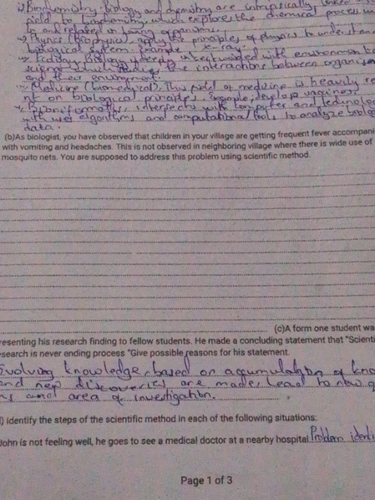 Biochemistry: biology and chemistry are
field, to biochemistry, which explores the chemical
to and related to living organisms.
Physics (Biophysics) apply the principles of physics to
biological system. example x-ray
Ecology: biology is with environmental
science which the interactions between
and their environment.
Medicine (biomedical). This field of medicine is heavily
on biological principles. example, develop
interects with computer and
algorithms and computational tools to analyze
data.
(b)As biologist, you have observed that children in your village are getting frequent fever accompani
with vomiting and headaches. This is not observed in neighboring village where there is wide use of
mosquito nets. You are supposed to address this problem using scientific method.
(c)A form one student wa
resenting his research finding to fellow students. He made a concluding statement that "Scienti
esearch is never ending process "Give possible reasons for his statement.
Evolving knowledge, based on accumulation of kno
and new discoveries are made, lead to new q
ns and area of investigation.
) Identify the steps of the scientific method in each of the following situations:
John is not feeling well, he goes to see a medical doctor at a nearby hospital Problem identi
Page 1 of 3